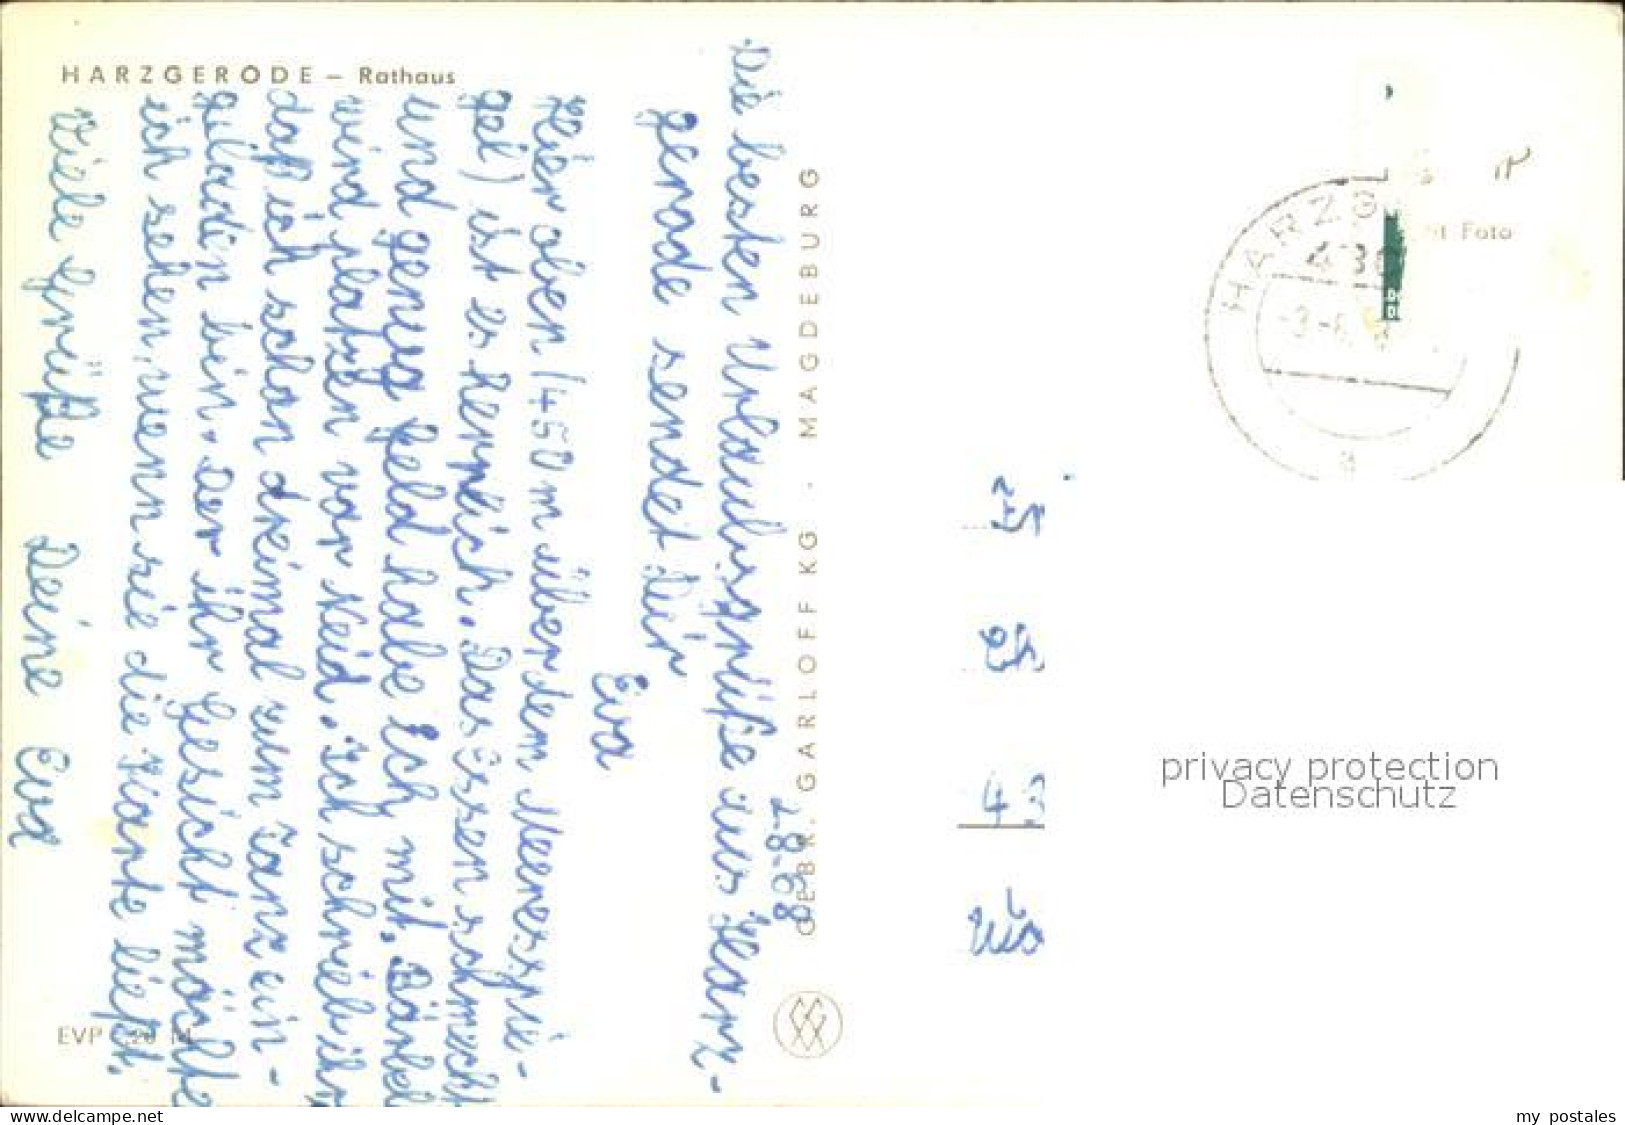 HARZGERODE – Rathaus
2-8-68
Die besten Urlaubsgrüße aus Harz-
gerode sendet Dir
Eva
Hier oben (450 m über dem Meeresspie-
gel) ist es herrlich. Das Essen schmeckt
und genug Geld habe ich mit. Bärbel
wird platzen vor Neid. Ich schrieb ihr
daß ich schon dreimal zum Tanz ein-
geladen bin. Der ihr Gesicht möchte
ich sehen, wenn sie die Karte liest.
Viele Grüße Deine Eva
GEBR. GARLOFF KG · MAGDEBURG
EVP 20 M
HARZG
43
a
Foto
43
privacy protection
Datenschutz
www.delcampe.net
my_postales